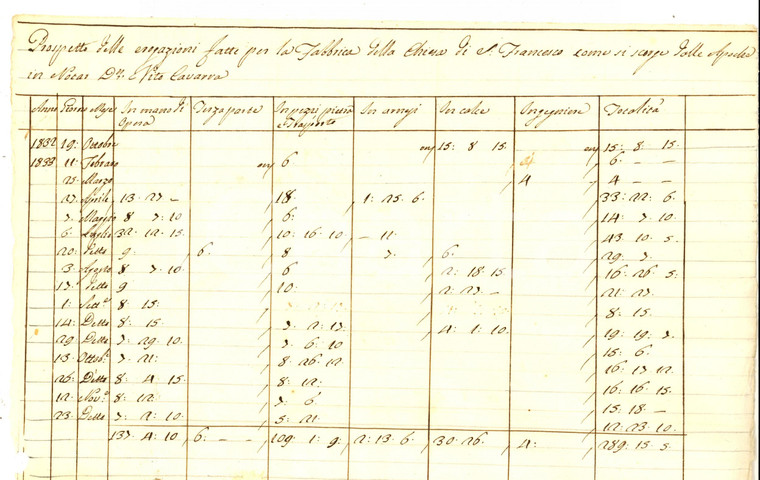 Prospetto delle erogazioni fatte per la Fabbrica della Chiesa di S. Francesco come si scorge dalle
in D.n Vito Cavarra
Anno Giorno Mese In mano di Opera Terza parte In pezzi pietra e Trasporto In arnesi In calce Ingegniere Totalità
1832 19: Ottobre 15: 8 15. 15: 8 15.
1833 11: Febraro 6 6 — —
25: Marzo 4 4 — —
27: Aprile 13 27 — 18. 1: 25 6. 33: 22: 6.
7: Maggio 8 7: 10 6: 14: 7 10.
6: Luglio 32: 12: 15. 10: 16 10 — 11 43 10 5.
20: Detto 9. 6. 8 7. 6. 29: 7
3: Agosto 8 7 10. 6 2: 18 15. 16: 26 5:
17: Detto 9 10: 2: 27 — 21: 27
1: Sett.e 8 15. 8 15.
14: Detto 8: 15 7 2: 17. 4: 1: 10. 19: 19: 7.
29: Detto 7: 29 10. 7 6 10 15: 6.
13: Ottob.e 7: 21: 8 26 12. 16: 17 12.
26: Detto 8: 4 15. 8: 12: 16: 16: 15.
12: Nov.e 8: 12: 7 6 15: 18 —
23: Detto 7: 2: 10. 5: 21 12: 23 10.
137 4: 10 6: — — 109 1: 9: 2: 13: 6 30 26. 4: 289: 15 5: